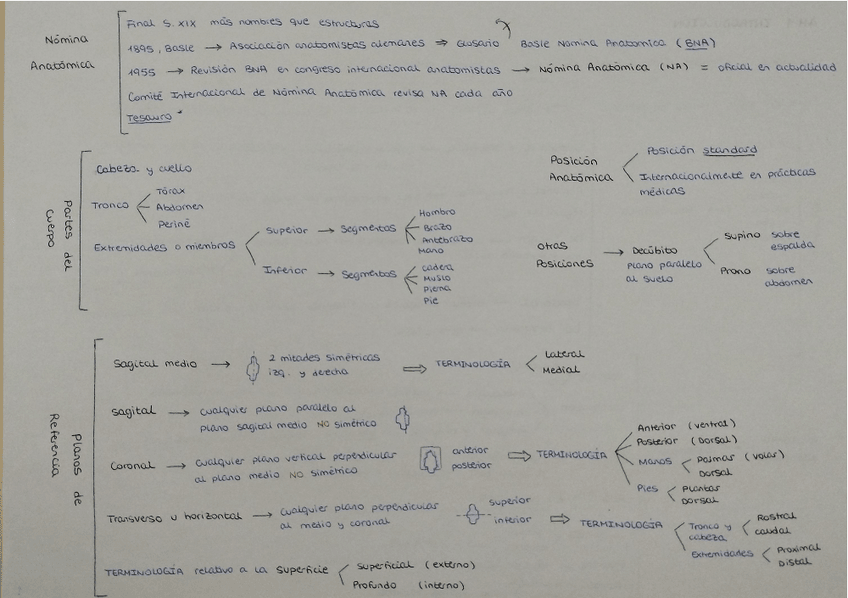 Nómina Anatómica
Final S. XIX más nombres que estructuras
1895, Basle → Asociación anatomistas alemanes ⇒ Glosario Basle Nomina Anatomica (BNA)
1955 → Revisión BNA en congreso internacional anatomistas → Nómina Anatómica (NA) = oficial en actualidad
Comité Internacional de Nómina Anatómica revisa NA cada año
Tesauro
Partes del cuerpo
Cabeza y cuello
Tronco
Tórax
Abdomen
Periné
Extremidades o miembros
Superior → Segmentos
Hombro
Brazo
Antebrazo
Mano
Inferior → Segmentos
Cadera
Muslo
Pierna
Pie
Posición Anatómica
Posición standard
Internacionalmente en prácticas
médicas
Otras
Posiciones
→ Decúbito
plano paralelo
al suelo
Supino sobre
espalda
Prono sobre
abdomen
Planos de Referencia
Sagital medio →
2 mitades simétricas
izq. y derecho
⇒ TERMINOLOGÍA
Lateral
Medial
Sagital → cualquier plano paralelo al
plano sagital medio NO simétrico
Coronal → cualquier plano vertical perpendicular
al plano medio NO simétrico
anterior
posterior
⇒ TERMINOLOGÍA
Anterior (ventral)
Posterior (Dorsal)
Manos
Palmar (volar)
Dorsal
Pies
Plantar
Dorsal
Transverso u horizontal → cualquier plano perpendicular
al medio y coronal
superior
inferior
⇒ TERMINOLOGÍA
Tronco y
cabeza
Rostral
caudal
Extremidades
Proximal
Distal
TERMINOLOGÍA relativo a la superficie
Superficial (externo)
Profundo (interno)